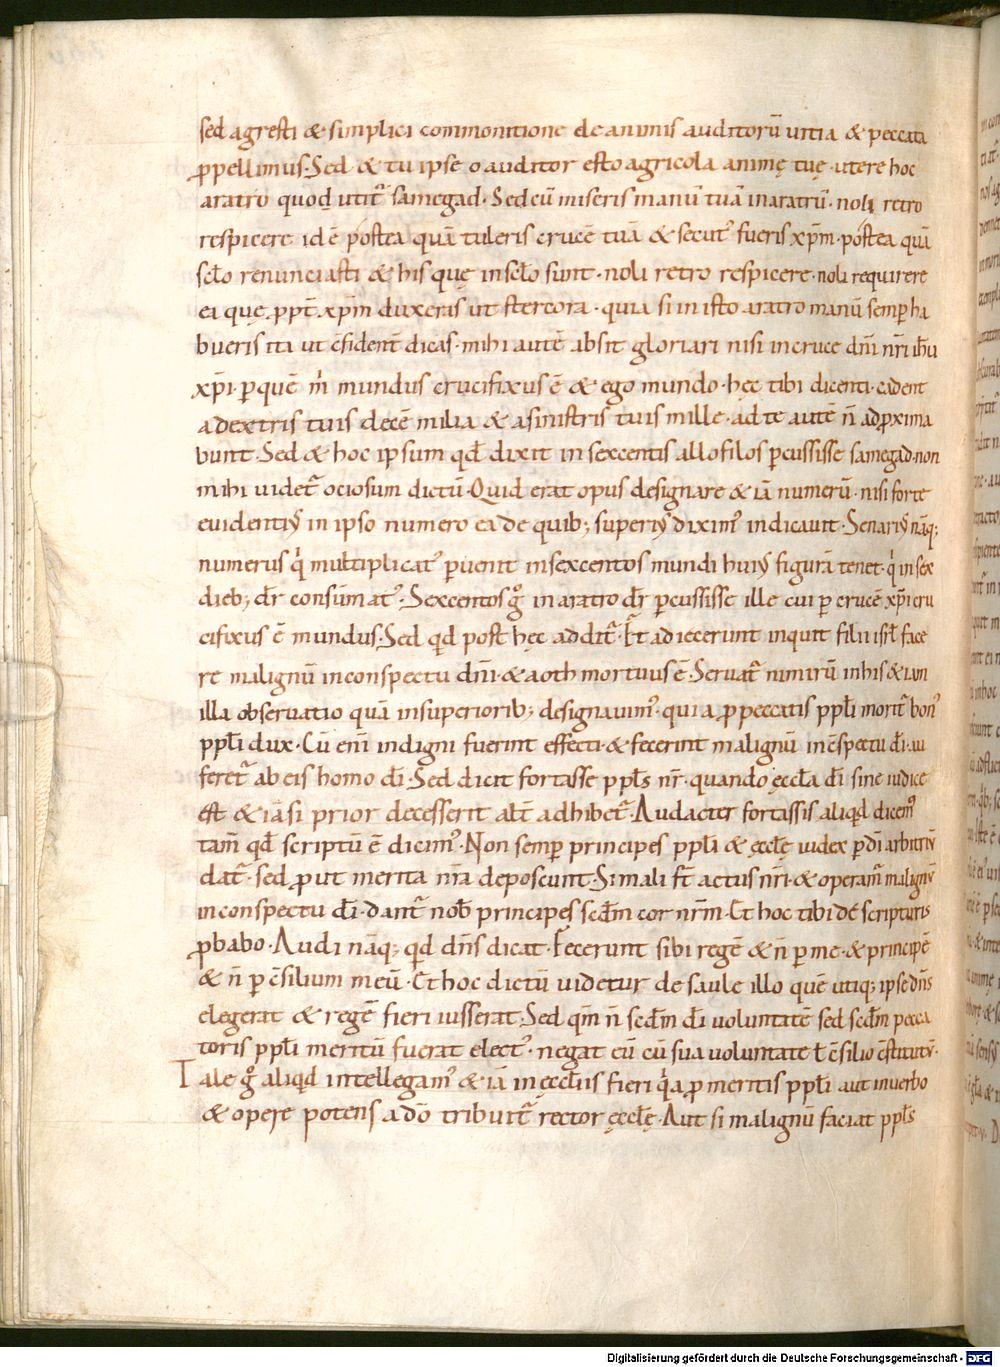 sed agresti & simplici commonitione de animis auditorū uitia & peccata
ꝓpellimus. Sed & tu ipse o auditor esto agricola animę tuę · utere hoc
aratro quod utit̄ samegad · Sed cū miseris manū tuā in aratrū · noli retro
respicere id ē postea quā tuleris crucē tuā & secut᾽ fueris xp̄m · postea quā
sc̄lo renunciasti & his quę in sc̄lo sunt · noli retro respicere · noli requirere
ea quę ꝓpt̄ xp̄m duxeras ut stercora · quia si in isto aratro manū semꝑ ha
bueris ita ut c̄fident̄ dicas · mihi autē absit gloriari nisi in cruce dn̄i nr̄i ih̄u
xp̄i · ꝑ quē m̄ mundus crucifixus ē & ego mundo · hęc tibi dicenti · cadent
a dextris tuis decē milia & a sinistris tuis mille · ad te autē n̄ adꝓxima
bunt. Sed & hoc ipsum qd̄ dixit in sexcentis allofilos ꝑcussisse samegad · non
mihi uidet̄ ociosum dictū · Quid erat opus designare & iā numerū · nisi forte
euidenti᾽ in ipso numero ea de quib; superi᾽ dixim᾽ indicauit · Senari᾽ nāq;
numerus q̇ multiplicat᾽ ꝑuenit in sexcentos mundi hui᾽ figurā tenet · q̇ in sex
dieb; dr̄ consūmat᾽. Sexcentos g̊ in aratro dr̄ ꝑcussisse ille cui ꝑ crucē xp̄i cru
cifixus ē mundus. Sed qd̄ post hęc addit̄. Et adiecerunt inquit filii isr̄l face
re malignū in conspectu dn̄i · & aoth mortuus ē. Seruat̄ nimirū in his & iam
illa obseruatio quā in superiorib; designauim᾽ · quia ꝓ peccatis pp̄li morit̄ bon᾽
pp̄li dux · Cū eni indigni fuerint effecti · & fecerint malignū in c̄spectu dī · au
feret̄ ab eis homo dī. Sed dicit fortasse pp̄ls nr̄ · quando ęccl̄a dī sine iudice
est & iā si prior decesserit alt̄ adhibet̄. Audacter fortassis aliqd̄ dicem᾽
tam̄ qd̄ scriptū ē dicim᾽ · Non semꝑ principes pp̄li & ęccl̄ę iudex ꝑ dī arbitriū
dat̄ · sed ꝓut merita nr̄a deposcunt. Si mali st̄ actus nr̄i · & operam̄ malignū
in conspectu dī · dant̄ nob̄ principes scd̄m cor nr̄m · Et hoc tibi de scripturis
ꝓbabo · Audi nāq; qd̄ dn̄s dicat · Fecerunt sibi regē & n̄ ꝑ me · & principē
& n̄ ꝑ c̄silium meū · Et hoc dictū uidetur de saule illo quē utiq; ipse dn̄s
elegerat & regē fieri iusserat. Sed qm̄ n̄ scd̄m dī uoluntatē sed scd̄m pecca
toris pp̄li meritū fuerat elect᾽ · negat eū cū sua uoluntate ł c̄silio c̄stitutū ·
Tale g̊ aliqd̄ intellegam᾽ & iā in ęccl̄iis fieri q̇a ꝓ meritis pp̄li aut in uerbo
& opere potens a dō tribuit̄ rector ęccl̄ę · Aut si malignū faciat pp̄ls
Digitalisierung gefördert durch die Deutsche Forschungsgemeinschaft · DFG